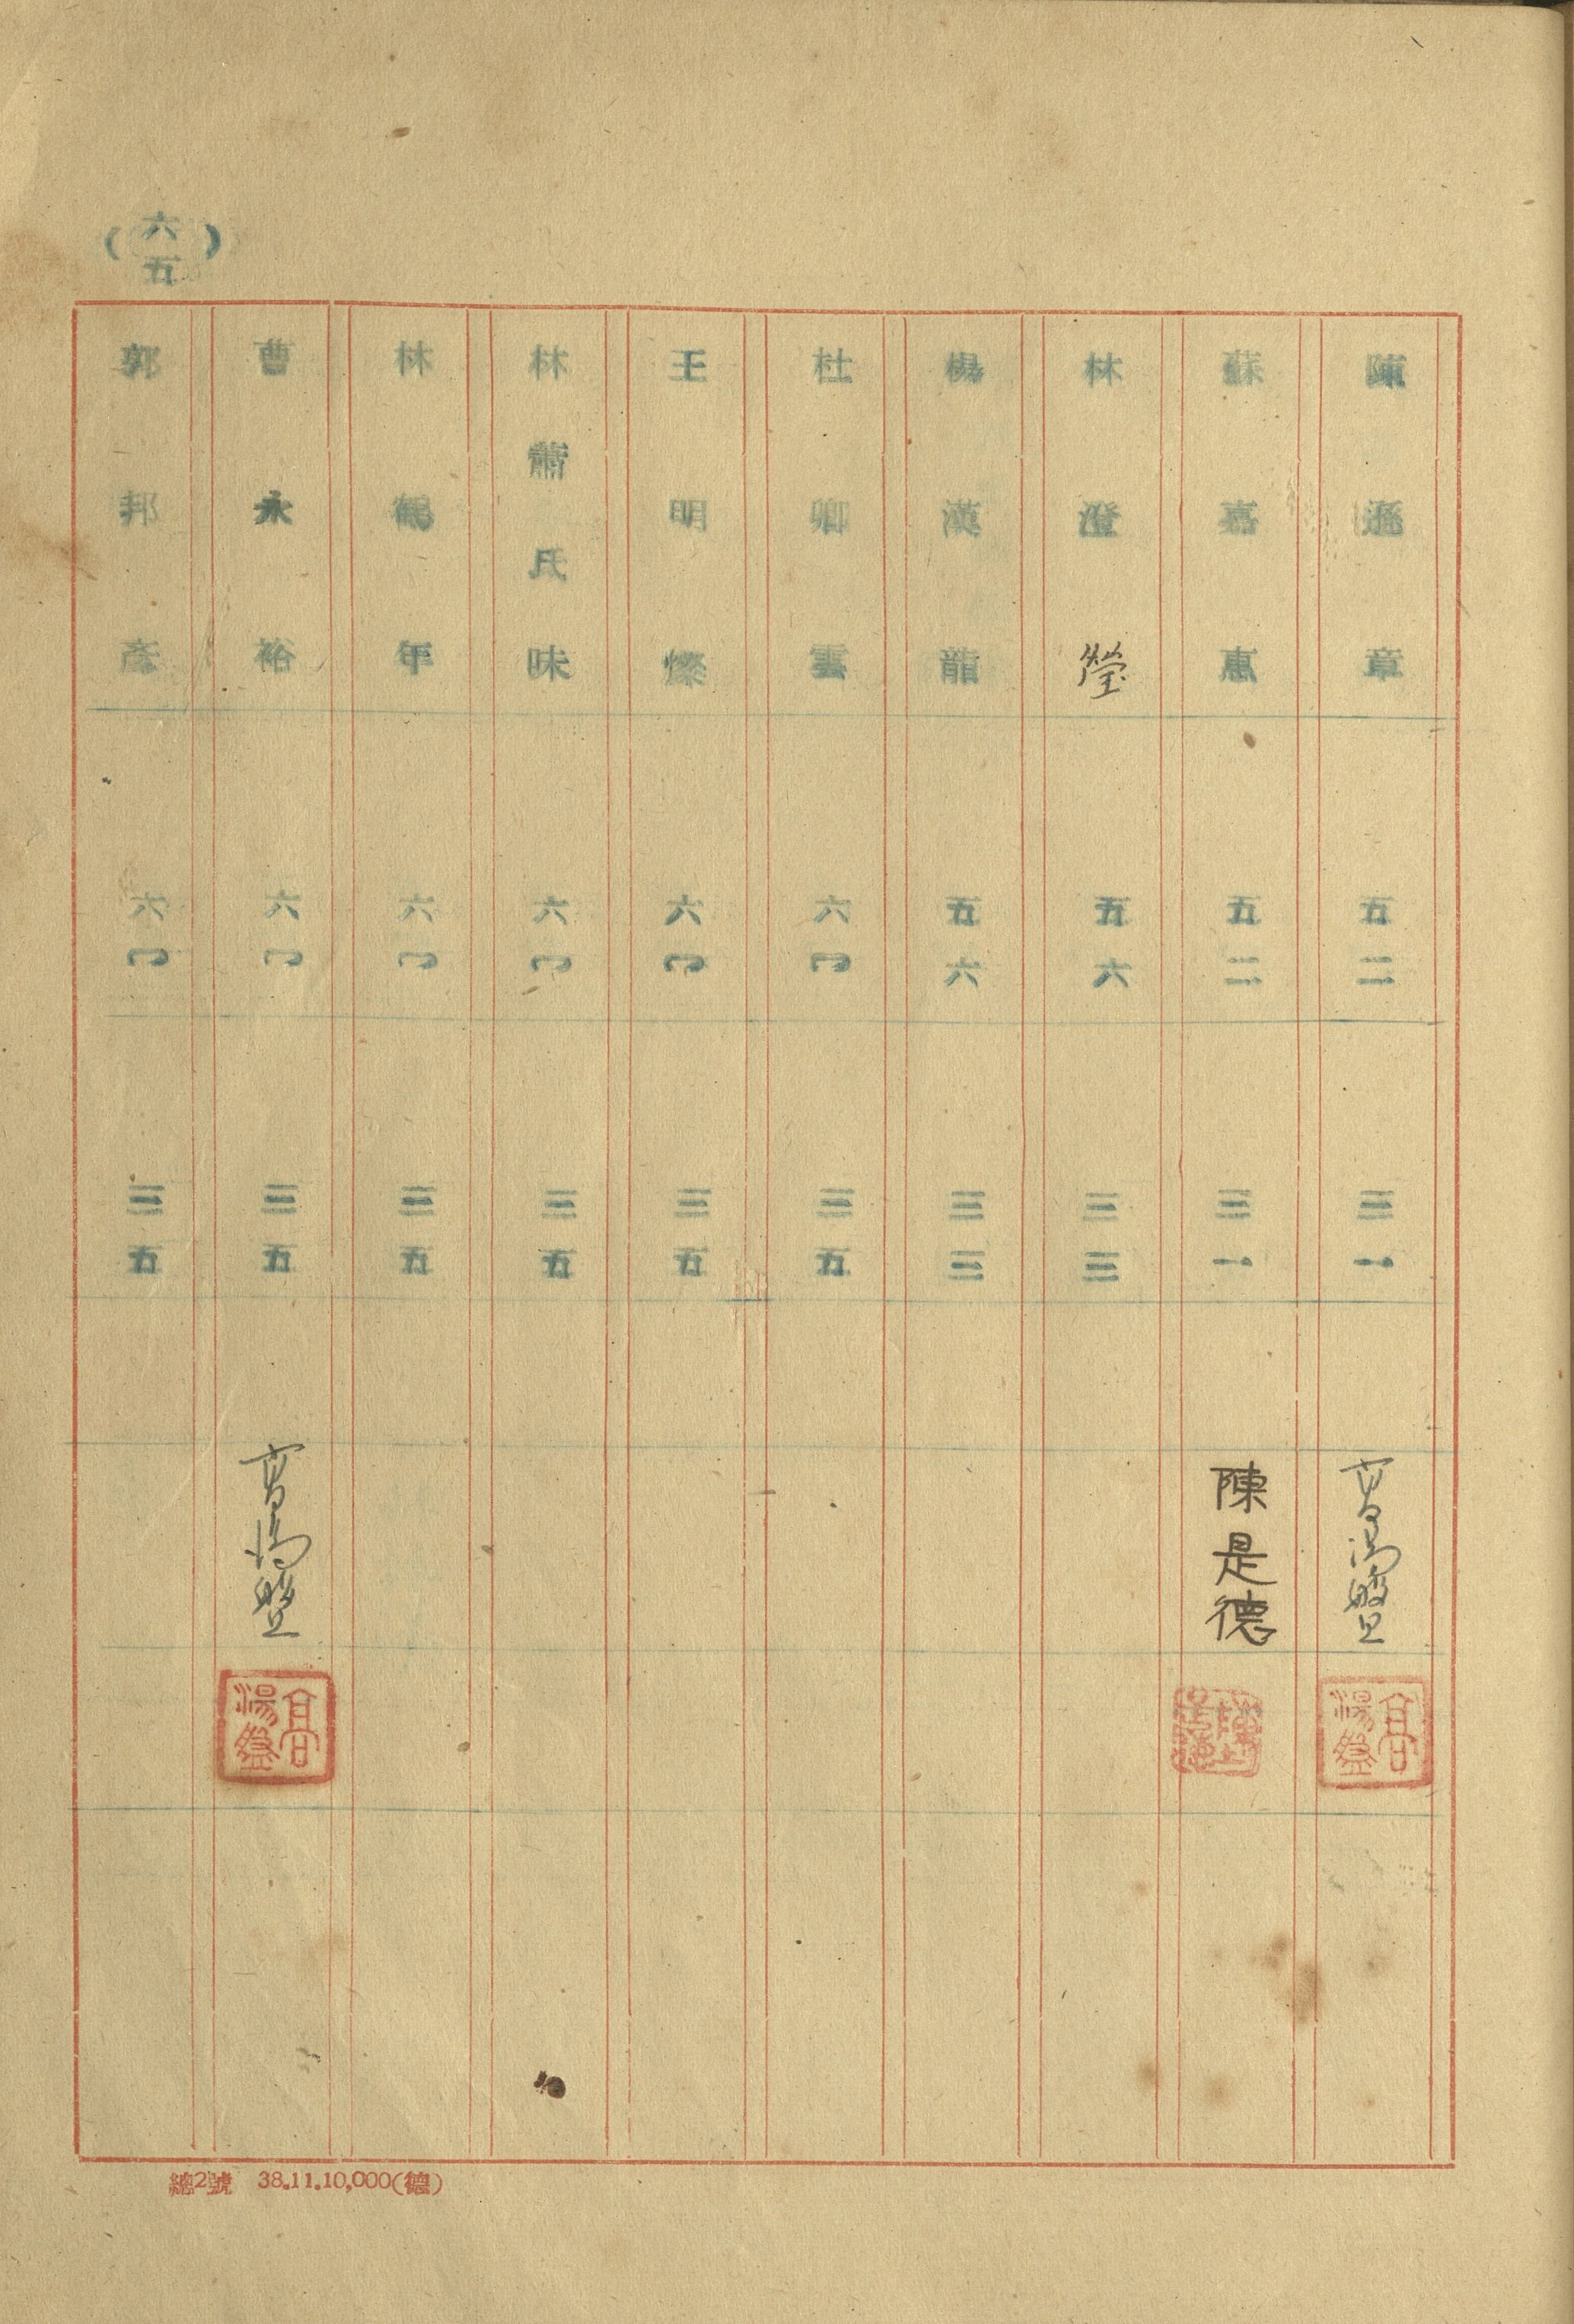 (六五)
陳遜章 五二 三一 高湯盤 高湯盤
蘇嘉惠 五二 三一 陳是德
林澄瑩 五六 三三
楊漢龍 五六 三三
杜卿雲 六〇 三五
王明燦 六〇 三五
林蕭氏味 六〇 三五
林鶴年 六〇 三五
曹永裕 六〇 三五 高湯盤 高湯盤
郭邦彥 六〇 三五
總2號 38.11.10,000(德)